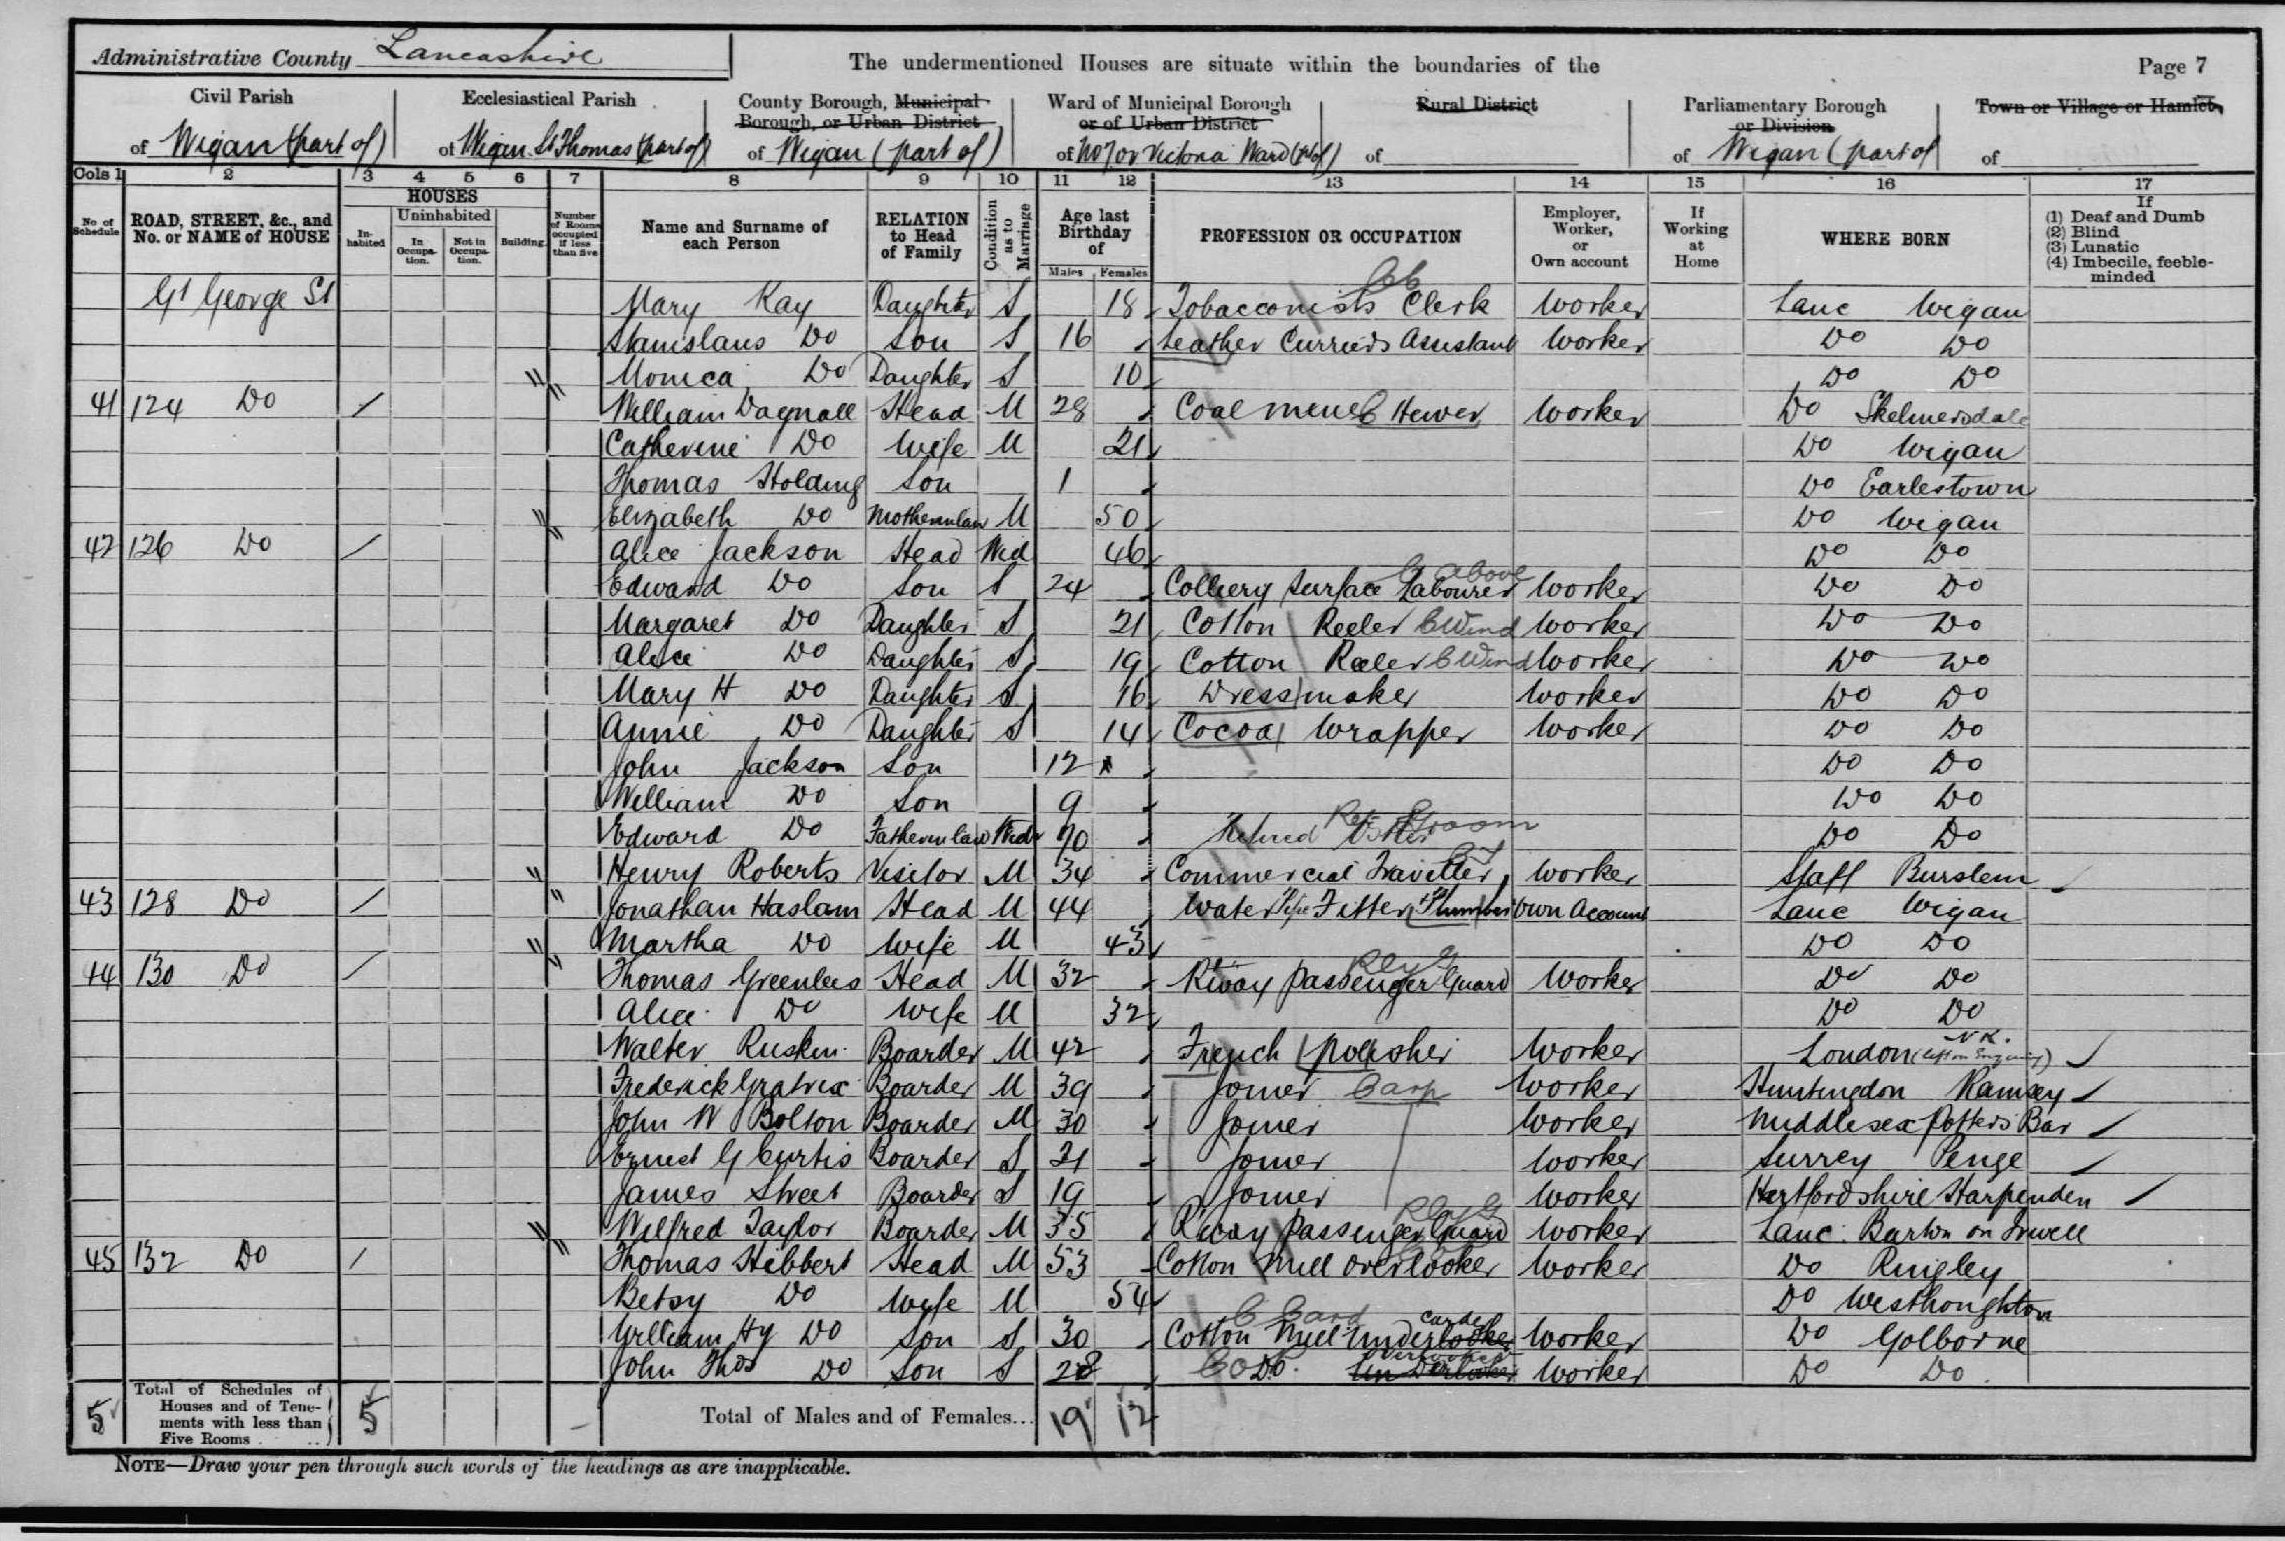 Administrative County Lancashire
The undermentioned Houses are situate within the boundaries of the
Page 7
Civil Parish of Wigan (part of)
Ecclesiastical Parish of Wigan St Thomas (part of)
County Borough, Municipal Borough, or Urban District of Wigan (part of)
Ward of Municipal Borough or of Urban District of No 7 or Victoria Ward (pt of)
Rural District of
Parliamentary Borough or Division of Wigan (part of
Town or Village or Hamlet, of
Cols 1 2 3 4 5 6 7 8 9 10 11 12 13 14 15 16 17
No of Schedule
ROAD, STREET, &c., and No. or NAME of HOUSE
HOUSES
Inhabited
Uninhabited
In Occupation.
Not in Occupation.
Building.
Number of Rooms occupied if less than five
Name and Surname of each Person
RELATION to Head of Family
Condition as to Marriage
Age last Birthday of
Males Females
PROFESSION OR OCCUPATION
Employer, Worker, or Own account
If Working at Home
WHERE BORN
If
(1) Deaf and Dumb
(2) Blind
(3) Lunatic
(4) Imbecile, feeble-minded
Gt George St Mary Kay Daughter S 18 Tobacconists Clerk Worker Lanc Wigan
Stanislaus Do Son S 16 Leather Curriers Assistant Worker Do Do
Monica Do Daughter S 10 Do Do
41 124 Do / William Dagnall Head M 28 Coal Mine Hewer Worker Do Skelmersdale
Catherine Do Wife M 21 Do Wigan
Thomas Holding Son 1 Do Earlestown
Elizabeth Do Motherinlaw M 50 Do Wigan
42 126 Do / Alice Jackson Head Wid 46 Do Do
Edward Do Son S 24 Colliery Surface Labourer above Worker Do Do
Margaret Do Daughter S 21 Cotton Reeler C Wind Worker Do Do
Alice Do Daughter S 19 Cotton Reeler C Wind Worker Do Do
Mary H Do Daughter S 16 Dressmaker Worker Do Do
Annie Do Daughter S 14 Cocoa Wrapper Worker Do Do
John Jackson Son 12 Do Do
William Do Son 9 Do Do
Edward Do Fatherinlaw Widr 70 Retired Ostler Ret Groom Do Do
Henry Roberts Visitor M 34 Commercial Traveller Worker Staff Burslem
43 128 Do / Jonathan Haslam Head M 44 Water Pipe Fitter Plumber Own Account Lanc Wigan
Martha Do Wife M 43 Do Do
44 130 Do / Thomas Greenlees Head M 32 Rlway Passenger Guard Rly G Worker Do Do
Alice Do Wife M 32 Do Do
Walter Ruskin Boarder M 42 French polisher Worker London NK.
Frederick Gratrix Boarder M 39 Joiner Carp Worker Huntingdon Ramsey
John W Bolton Boarder M 30 Joiner Worker Middlesex Potters Bar
Ernest G Curtis Boarder S 21 Joiner Worker Surrey Penge
James Street Boarder S 19 Joiner Worker Hertfordshire Harpenden
Wilfred Taylor Boarder M 35 Rlway Passenger Guard Rly G Worker Lanc. Barton on Irwell
45 132 Do / Thomas Hibbert Head M 53 Cotton Mill Overlooker Worker Do Ringley
Betsy Do Wife M 54 Do Westhoughton
William Hy Do Son S 30 Cotton Mill Underlooker Carder C Card Worker Do Golborne
John Thos Do Son S 28 Do. Underlooker Overlooker Worker Do Do
5 Total of Schedules of Houses and of Tenements with less than Five Rooms 5 Total of Males and of Females... 19 12
NOTE—Draw your pen through such words of the headings as are inapplicable.